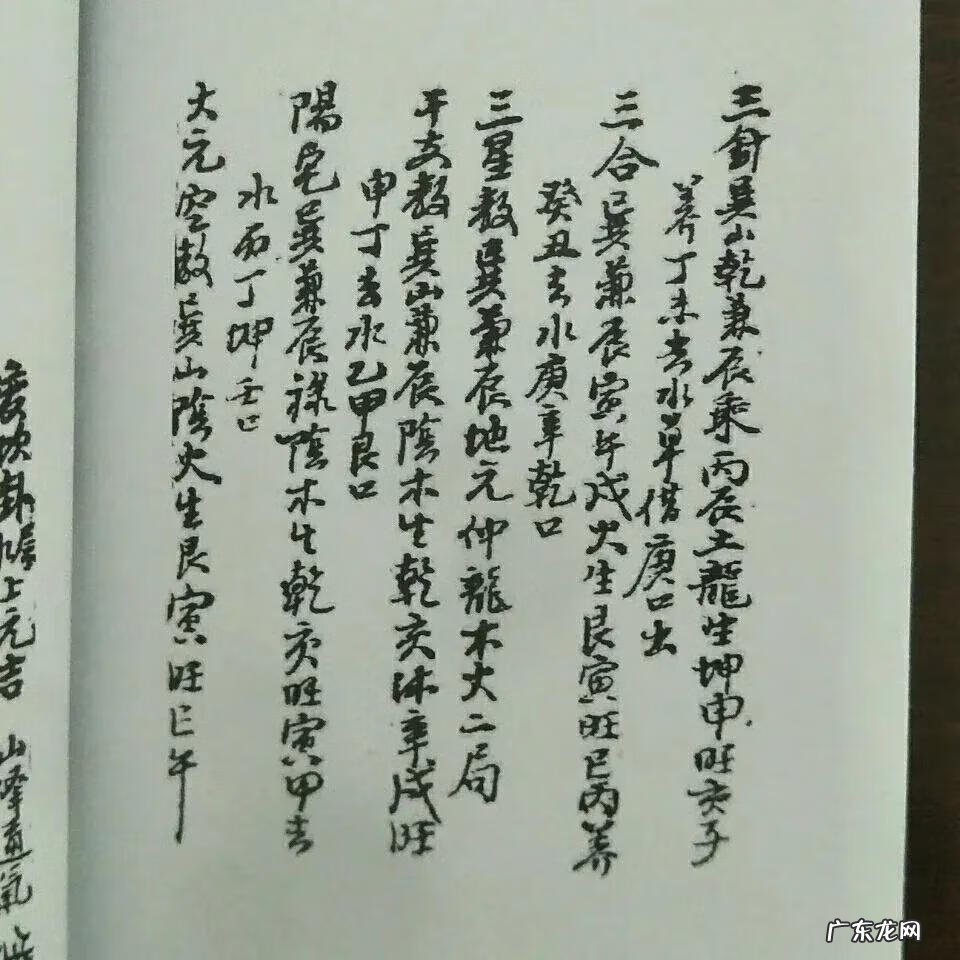 三針巽山乾兼辰乘丙辰土龍生坤申旺亥子
养丁未去水单借庚口出
三合巳巽兼辰寅午戌火生艮寅旺巳丙养
癸丑去水庚辛乾口
三星数巽兼辰地元仲龍木火二局
干支数巽山兼辰陰木生乾亥沐辛戌旺
申丁去水乙甲艮口
陽宅巽兼辰禄陰木生乾亥旺寅甲去
水丙丁坤壬口
大元空数巽山陰火生艮寅旺巳午
坎卦 上元吉 山峰通氣
广东龙网